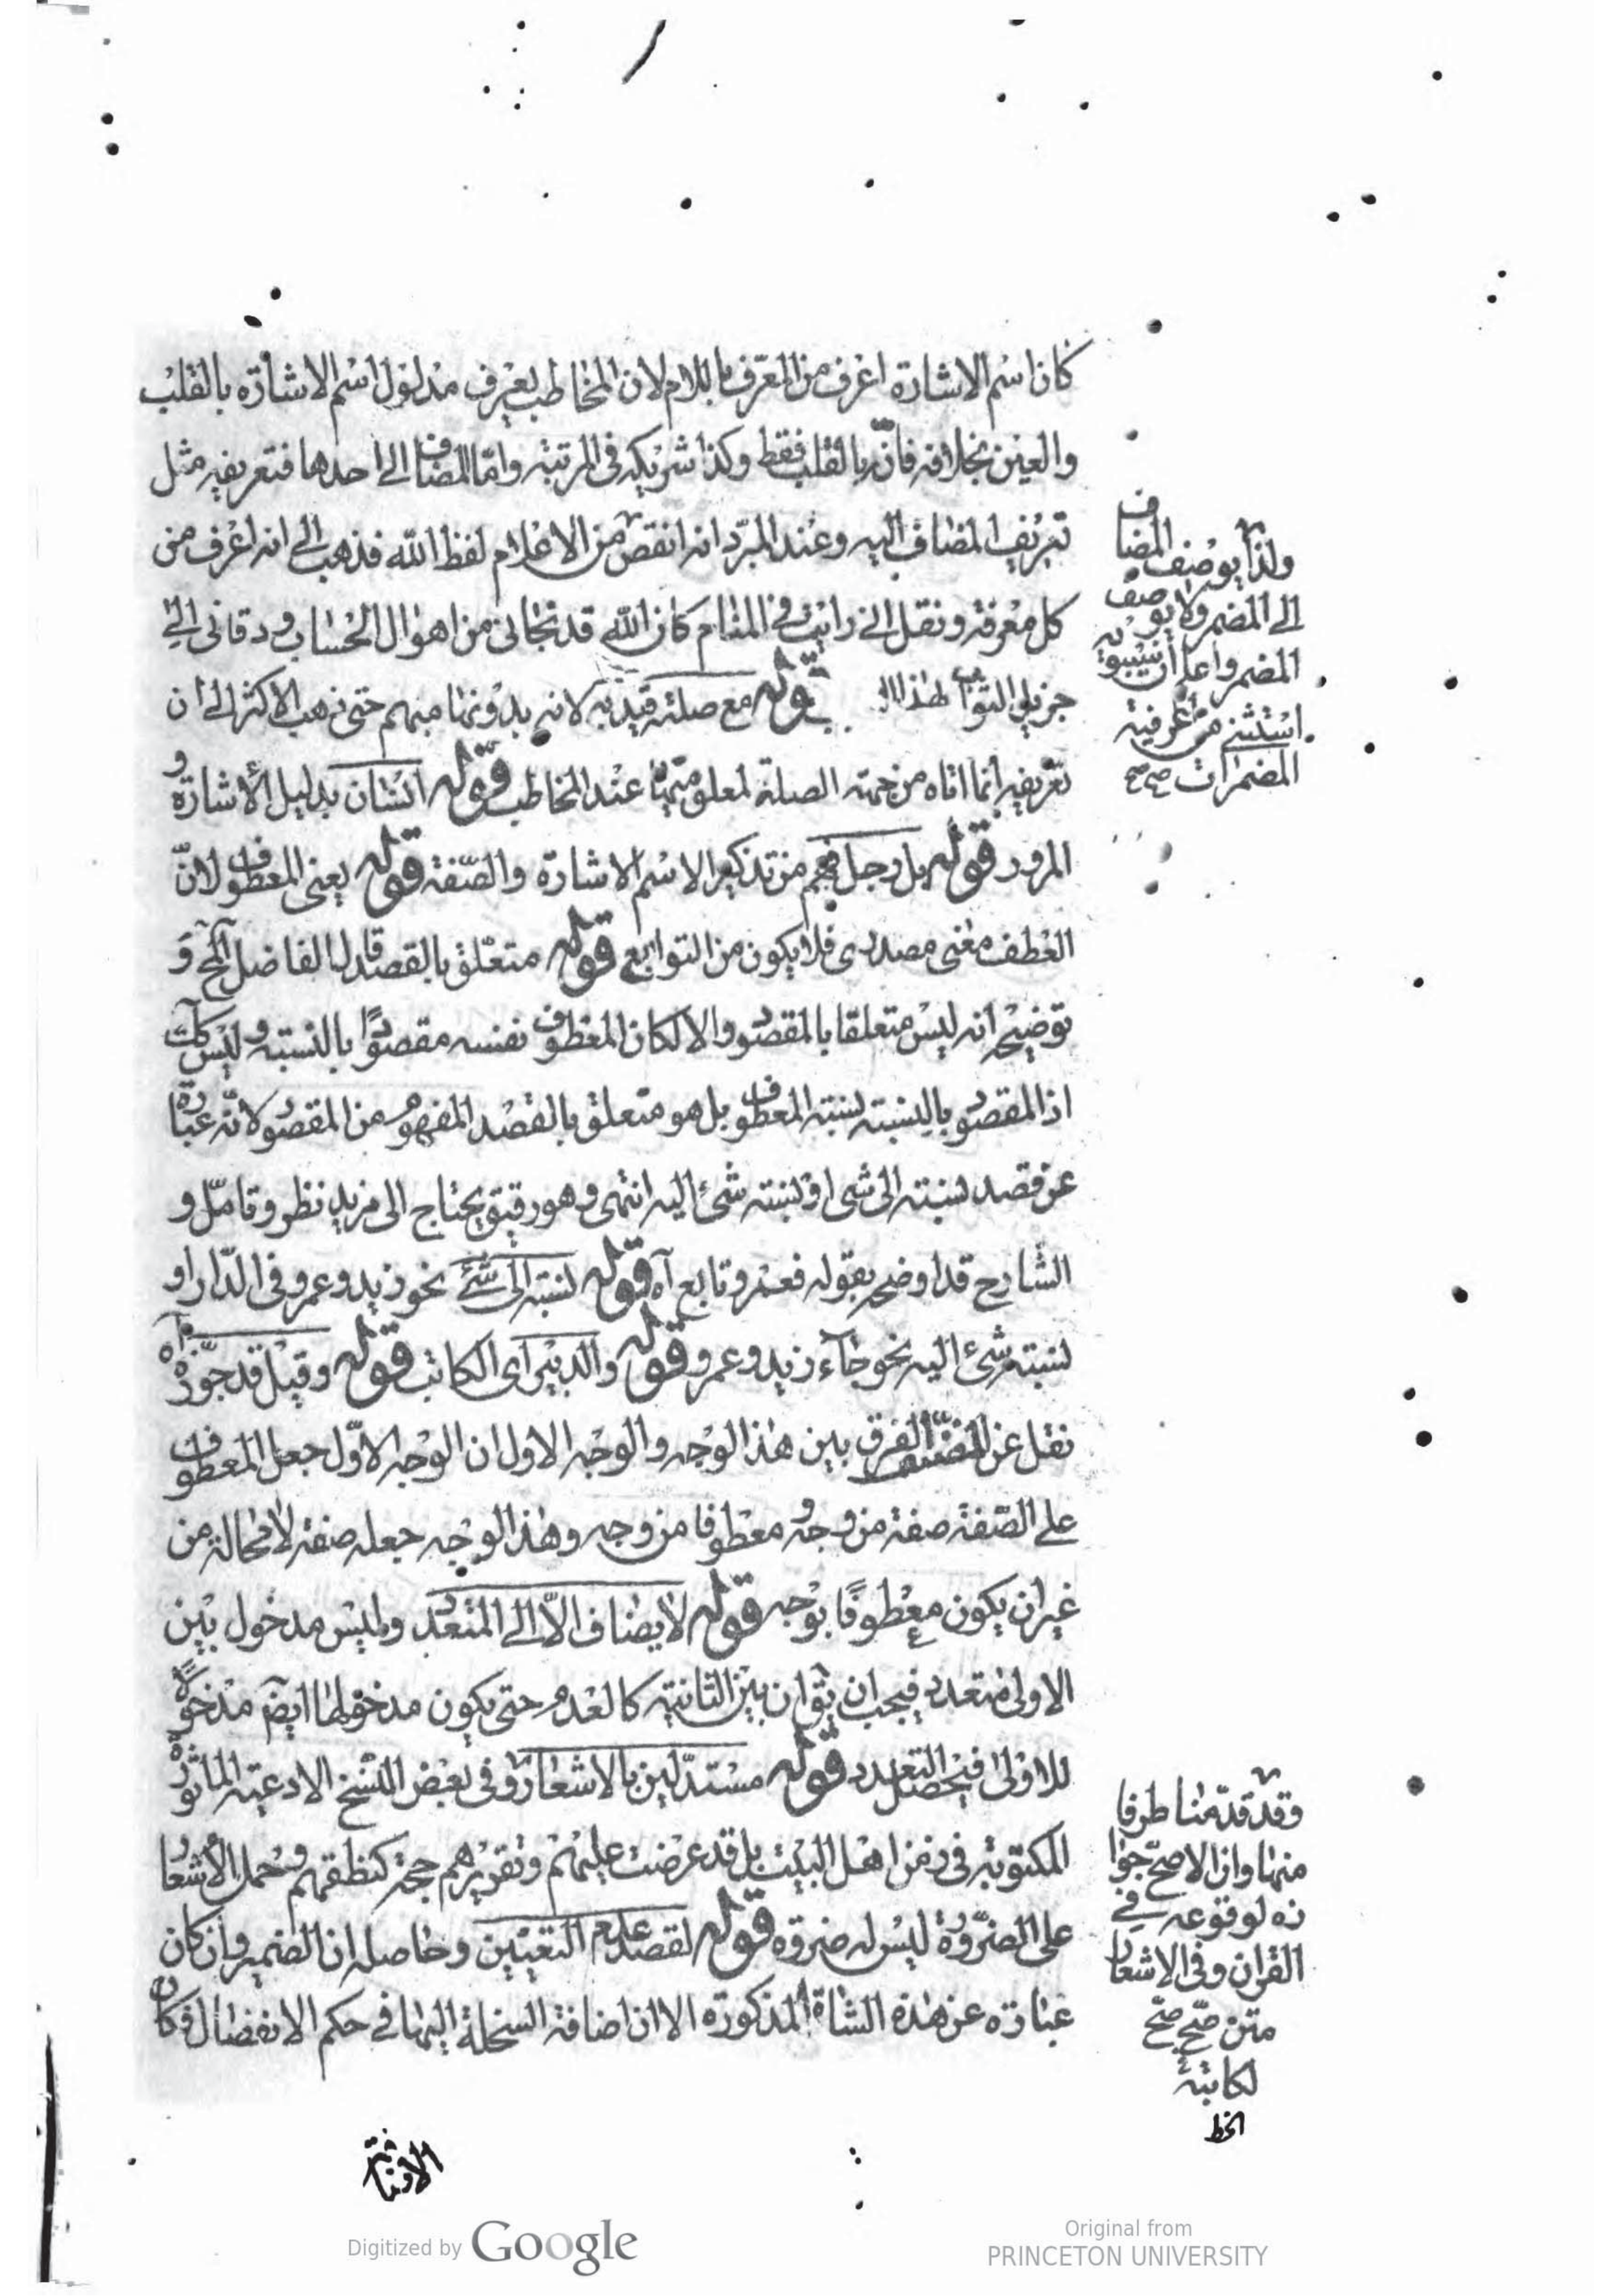 كان اسم الاشارة اعرف من المعرف باللام لان المخاطب يعرف مدلول اسم الاشارة بالقلب
والعين بخلافه فانه بالقلب فقط وكذا شريكه فى المرتبة واما المضاف الى احدها فتعريفه مثل
تعريف المضاف اليه وعند المبرد انه انقص من الاعلام لفظ الله فذهب الى انه اعرف من
كل معرفة ونقل انى رايت فى المنام كان الله قد نجانى من اهوال الحساب ودقانى الى
جزيل الثواب لهذا قوله مع صلته قيد به لانه بدونها مبهم حتى ذهب الاكثر الى ان
تعريفه انما اتاه من جهة الصلة لمعلوميتها عند المخاطب قوله انسان بدليل الاشارة و
المرور قوله بل رجل فهم من تذكير الاسم الاشارة والصفة قوله يعنى المعطوف لان
العطف معنى مصدرى فلا يكون من التوابع قوله متعلق بالقصد قال الفاضل المح و
توضيحه انه ليس متعلقا بالمقصود والا لكان المعطوف نفسه مقصودًا بالنسبة وليس كك
اذ المقصود بالنسبة نسبة المعطوف بل هو متعلق بالقصد المفهوم من المقصود لانه عبارة
عن قصد نسبته الى شى او نسبة شئ اليه انتهى وهو دقيق يحتاج الى مزيد نظر وتامل و
الشارح قد اوضحه بقوله فعمرو تابع آه قوله نسبته الى شئ نحو زيد وعمرو فى الدار او
نسبة شئ اليه نحو جاء زيد وعمرو قوله والدبير اى الكاتب قوله وقيل قد جوزه آه
نقل عن المصنف الفرق بين هذا الوجه والوجه الاول ان الوجه الاول جعل المعطوف
على الصفة صفة من وجه ومعطوفا من وجه وهذا الوجه جعله صفة لا محالة من
غير ان يكون معطوفًا بوجه قوله لا يضاف الا الى المتعدد وليس مدخول بين
الاولى متعدد فيجب ان يقال ان بين الثانية كالعدم حتى يكون مدخولها ايضا مدخولا
للاولى فيحصل التعدد قوله مستدلين بالاشعار وفى بعض النسخ الادعية الماثورة
المكتوبة فى زمن اهل البيت بل قد عرضت عليهم وتقريرهم حجة كنطقهم وحمل الاشعار
على الضرورة ليس له ضرورة قوله لقصد عدم التعيين وحاصله ان الضمير وان كان
عبارة عن هذه الشاة المذكورة الا ان اضافة السخلة اليها فى حكم الانفصال فكان
ولذا يوصف المضاف
الى المضمر ولا يوصف
المضمر واعلم ان سيبويه
استثنى من اعرفية
المضمرات صح صح
وقد قدمنا طرفا
منها وان الاصح جوا
زه لوقوعه فى
القران وفى الاشعار
متن صح صح
لكاتبه
الخط
Digitized by Google
Original from
PRINCETON UNIVERSITY